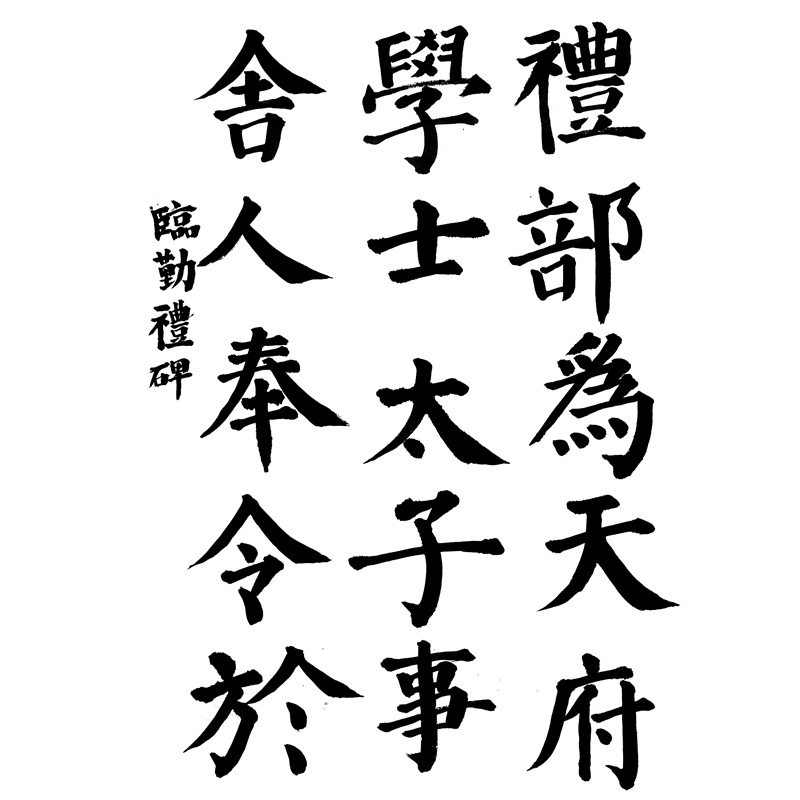 禮部為天府
學士太子事
舍人奉令於
臨勤禮碑